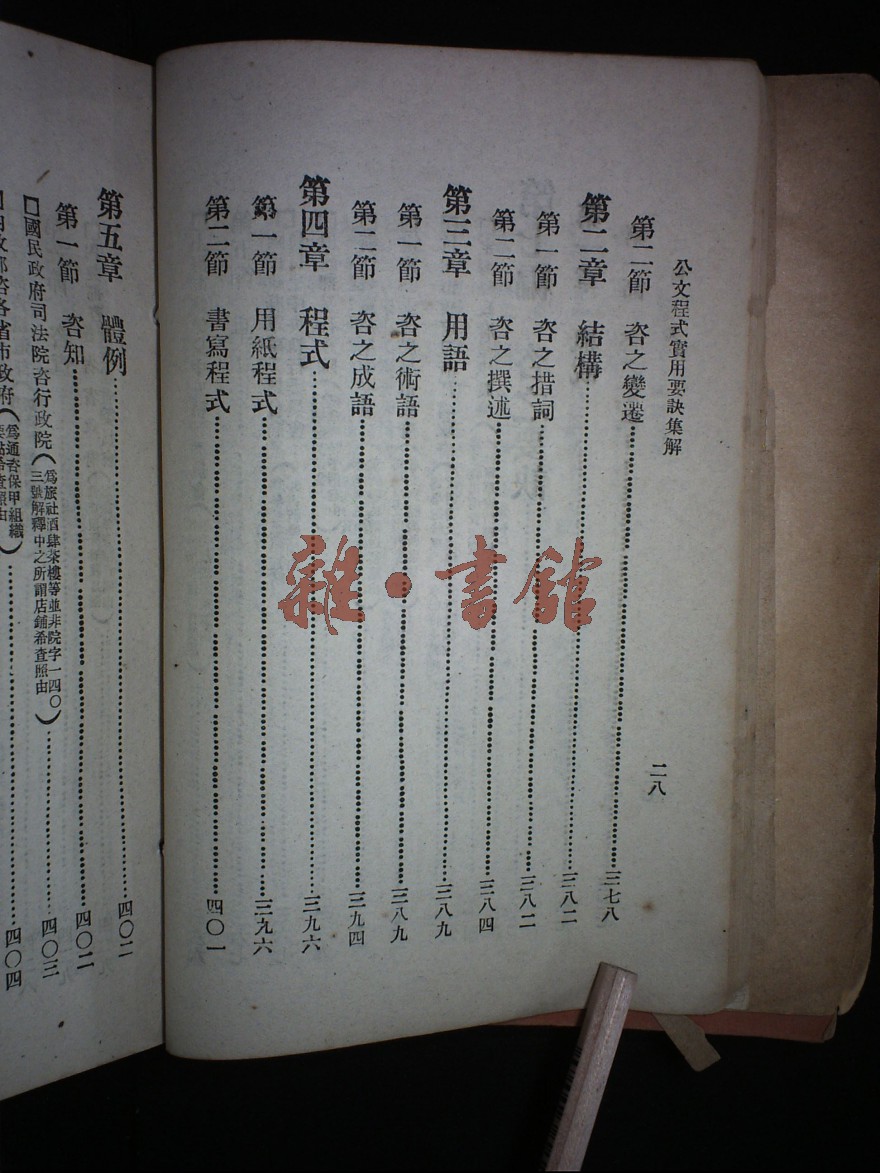 公文程式實用要訣集解
二八
第二節 咨之變遷 三七八
第二章 結構 三八二
第一節 咨之措詞 三八二
第二節 咨之撰述 三八四
第三章 用語 三八九
第一節 咨之術語 三八九
第二節 咨之成語 三九四
第四章 程式 三九六
第一節 用紙程式 三九六
第二節 書寫程式 四〇一
第五章 體例 四〇二
第一節 咨知 四〇二
□國民政府司法院咨行政院(爲旅社酒肆茶樓等並非院字一四〇三號解釋中之所謂店鋪希查照由) 四〇三
政部咨各省市政府(爲通咨保甲組織查照由) 四〇四
雜·書館